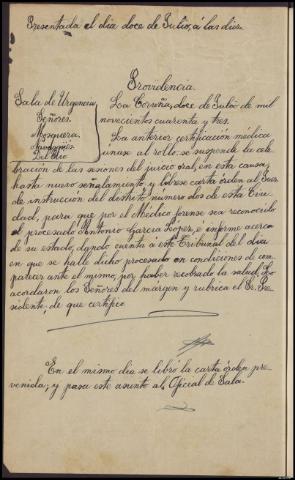 Presentada el dia doce de Julio, á las diez.
Providencia.
Sala de Urgencia
Señores.
Mosquera.
Del Rio
La Coruña, doce de Julio de mil
novecientos cuarenta y tres.
La anterior certificación médica
únase al rollo: se suspende la cele
bración de las sesiones del juicio oral, en esta causa,
hasta nuevo señalamiento y líbrese carta órden al Juez
de instrucción del distrito número dos de esta Ciu
dad, para que por el Médico forense sea reconocido
el procesado Antonio Garcia Lopez, é informe acerca
de su estado, dando cuenta á este Tribunal del dia
en que se halle dicho procesado en condiciones de com
parecer ante el mismo, por haber recobrado la salud. Lo
acordaron los Señores del márgen y rubrica el Sr. Pre
sidente, de que certifico.
En el mismo dia se libró la carta órden pre
venida; y pasa este asunto al Oficial de Sala.